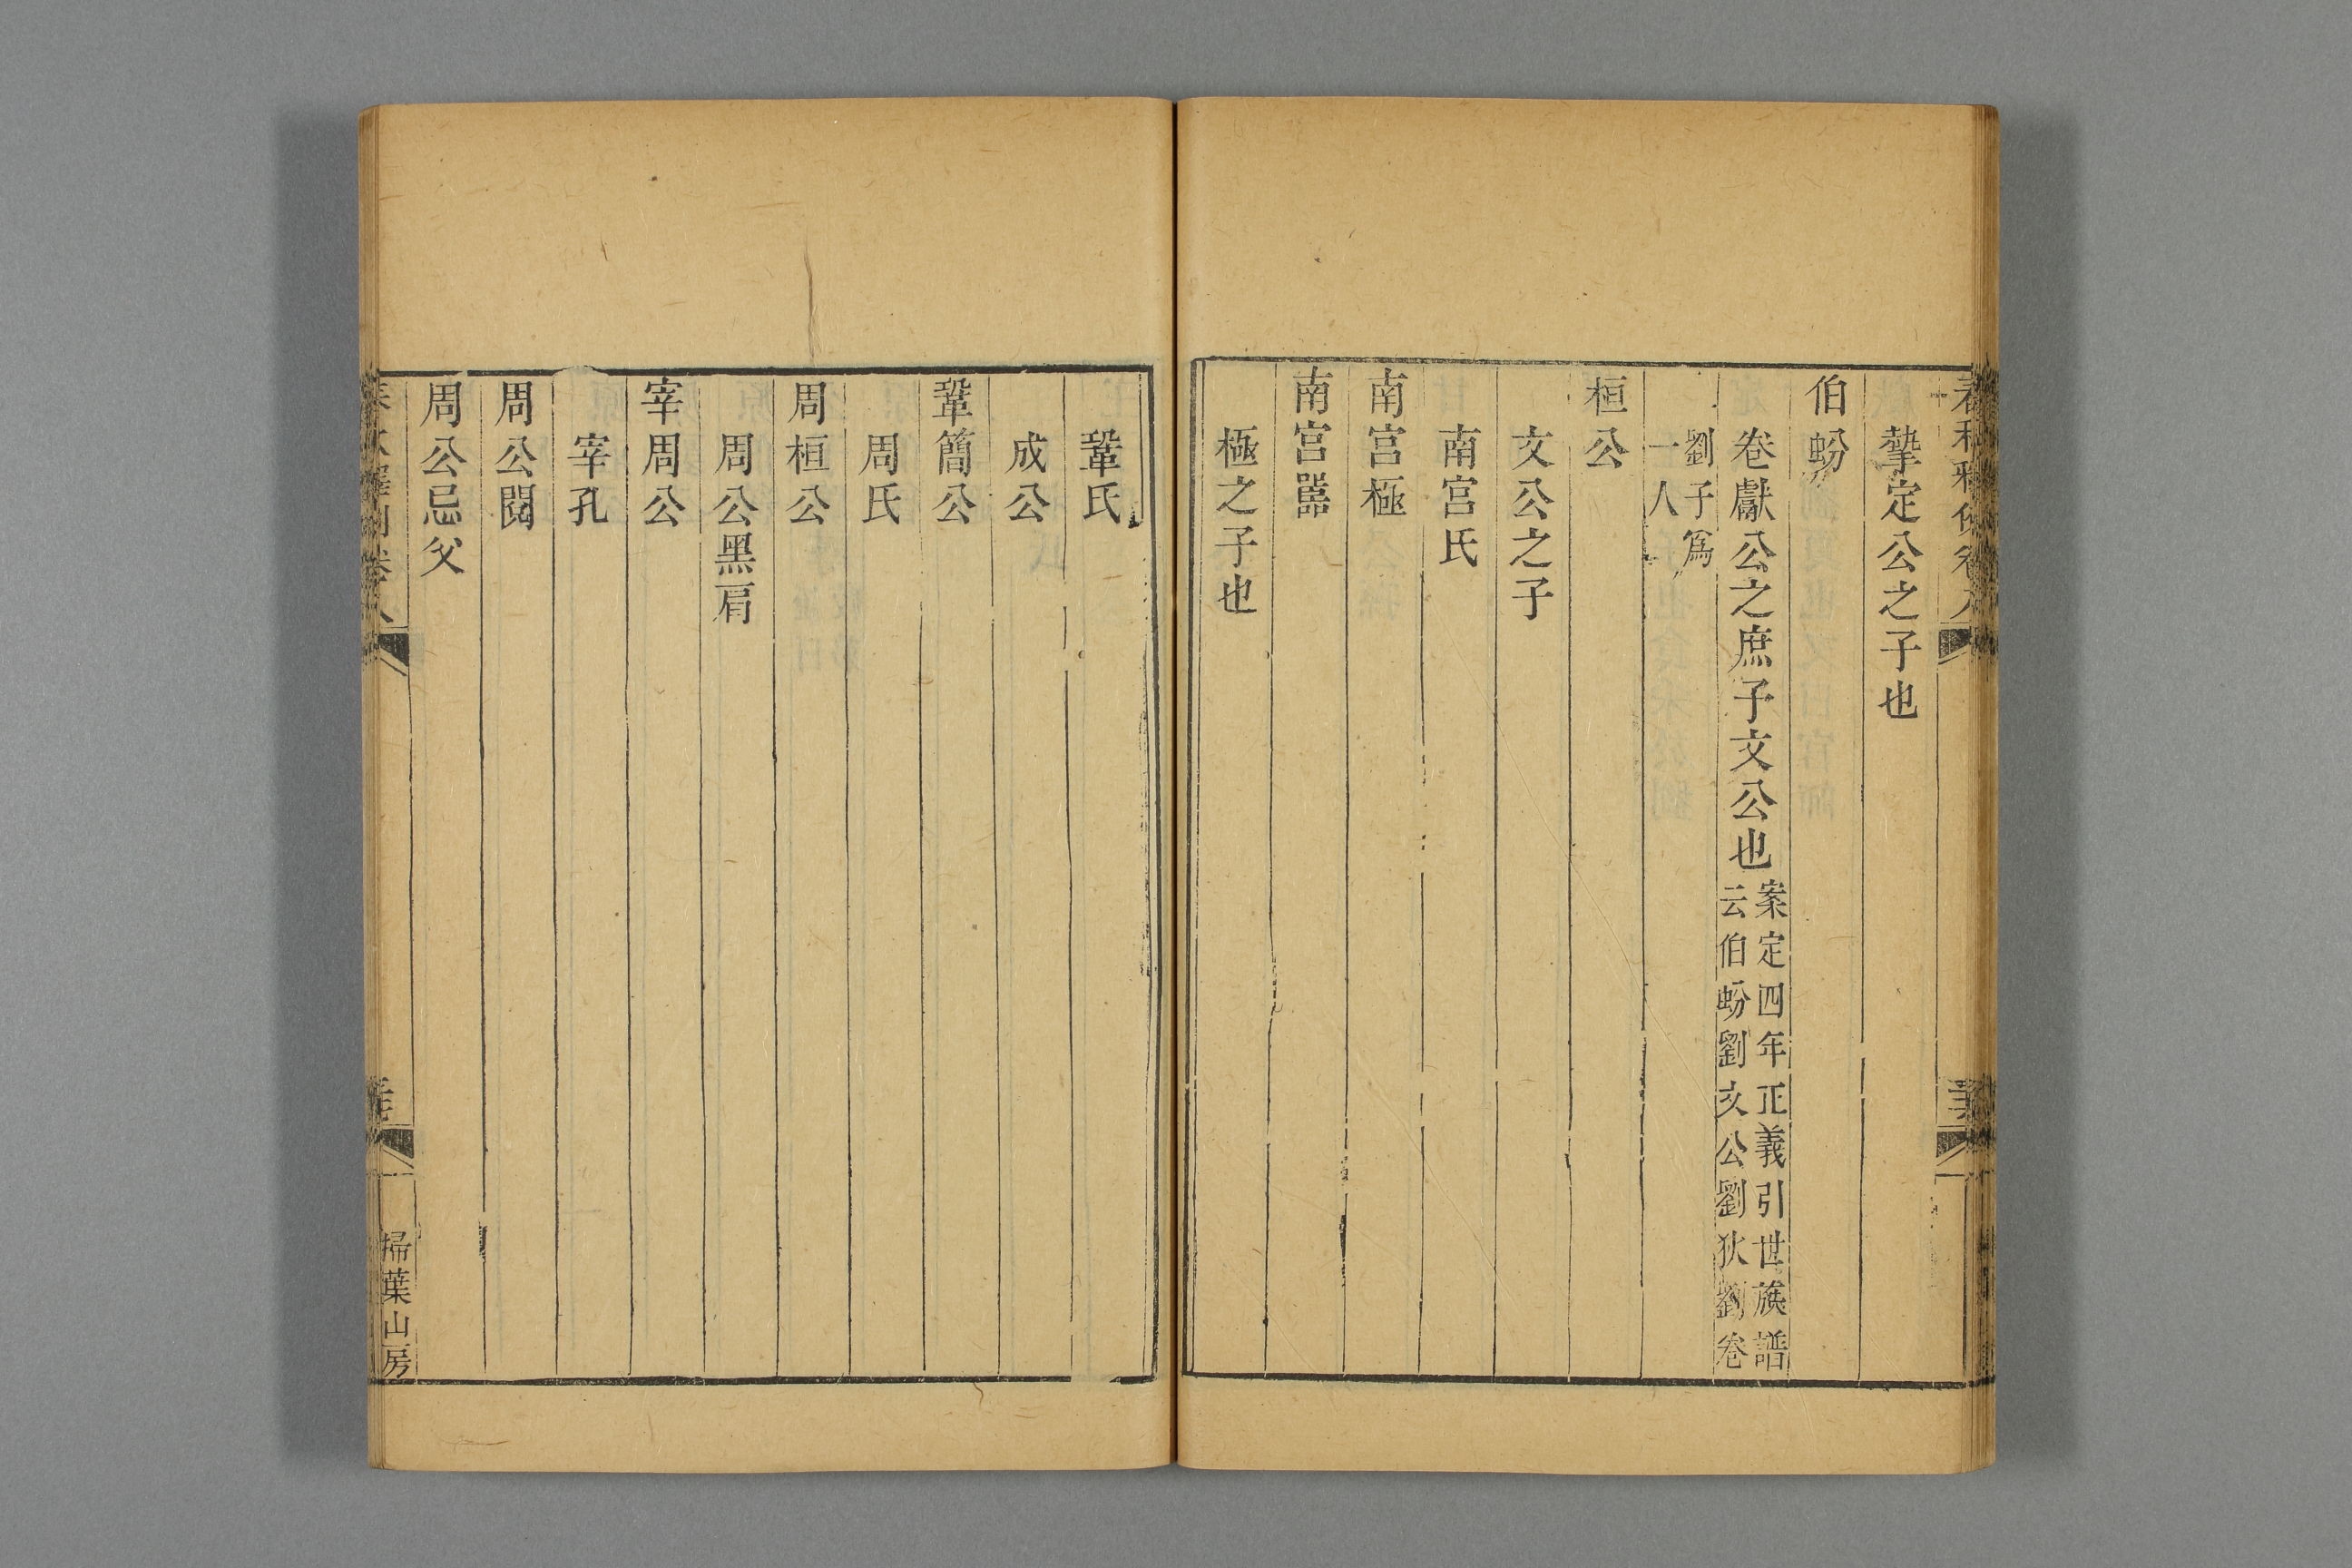 春秋釋例卷八
摯定公之子也
伯蚡
卷獻公之庶子文公也案定四年正義引世族譜
云伯蚡劉文公劉狄劉卷
劉子爲
一人
桓公
文公之子
南宮氏
南宮極
南宮嚚
極之子也
鞏氏
成公
鞏簡公
周氏
周桓公
周公黑肩
宰周公
宰孔
周公閱
周公忌父
春秋釋例卷八
掃葉山房